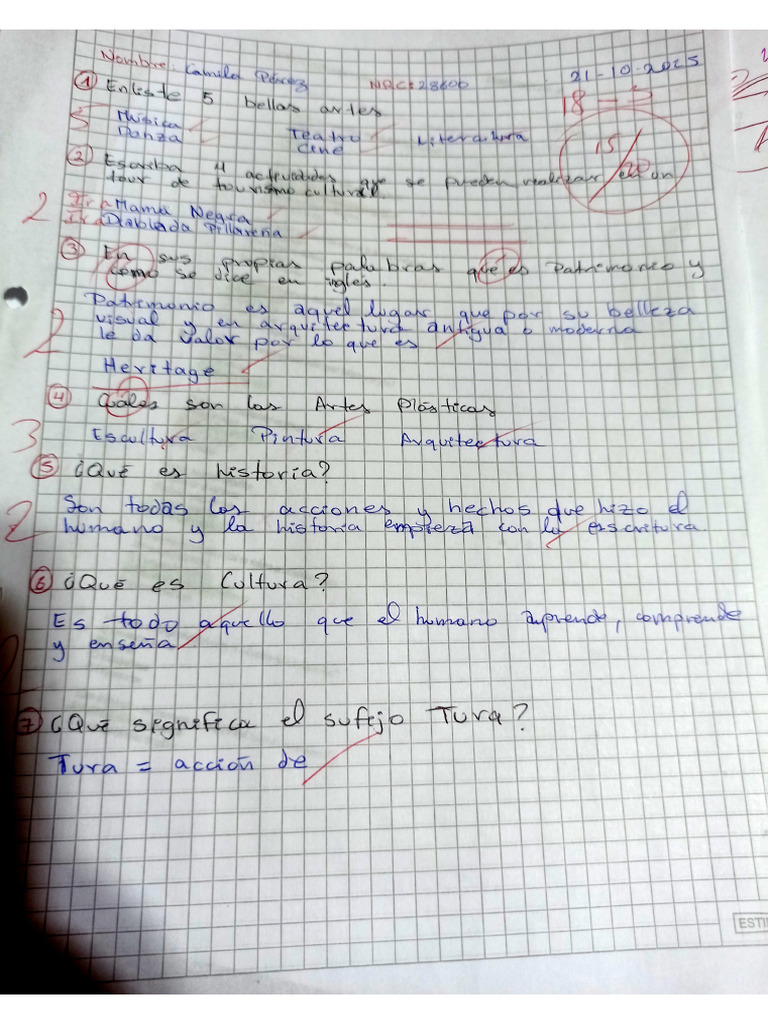 Nombre: Camila Pérez NRC: 28600 21-10-2025
① Enliste 5 bellas artes 18 - 3
5 Música Teatro Literatura 15/20
Danza Cine
② Escriba 4 actividades que se pueden realizar en un
tour de tourismo cultural.
2 Ir a Mama Negra
Ir a Diablada Pillareña
③ En sus propias palabras que es Patrimonio y
como se dice en ingles.
2 Patrimonio es aquel lugar que por su belleza
visual y en arquitectura antigua o moderna
le da valor por lo que es
Heritage
④ Cuáles son las Artes Plásticas
3 Escultura Pintura Arquitectura
⑤ ¿Qué es historia?
2 Son todas las acciones y hechos que hizo el
humano y la historia empieza con la escritura
⑥ ¿Qué es Cultura?
Es todo aquello que el humano aprende, comprende
y enseña
⑦ ¿Qué significa el sufijo Tura?
Tura = acción de
ESTI